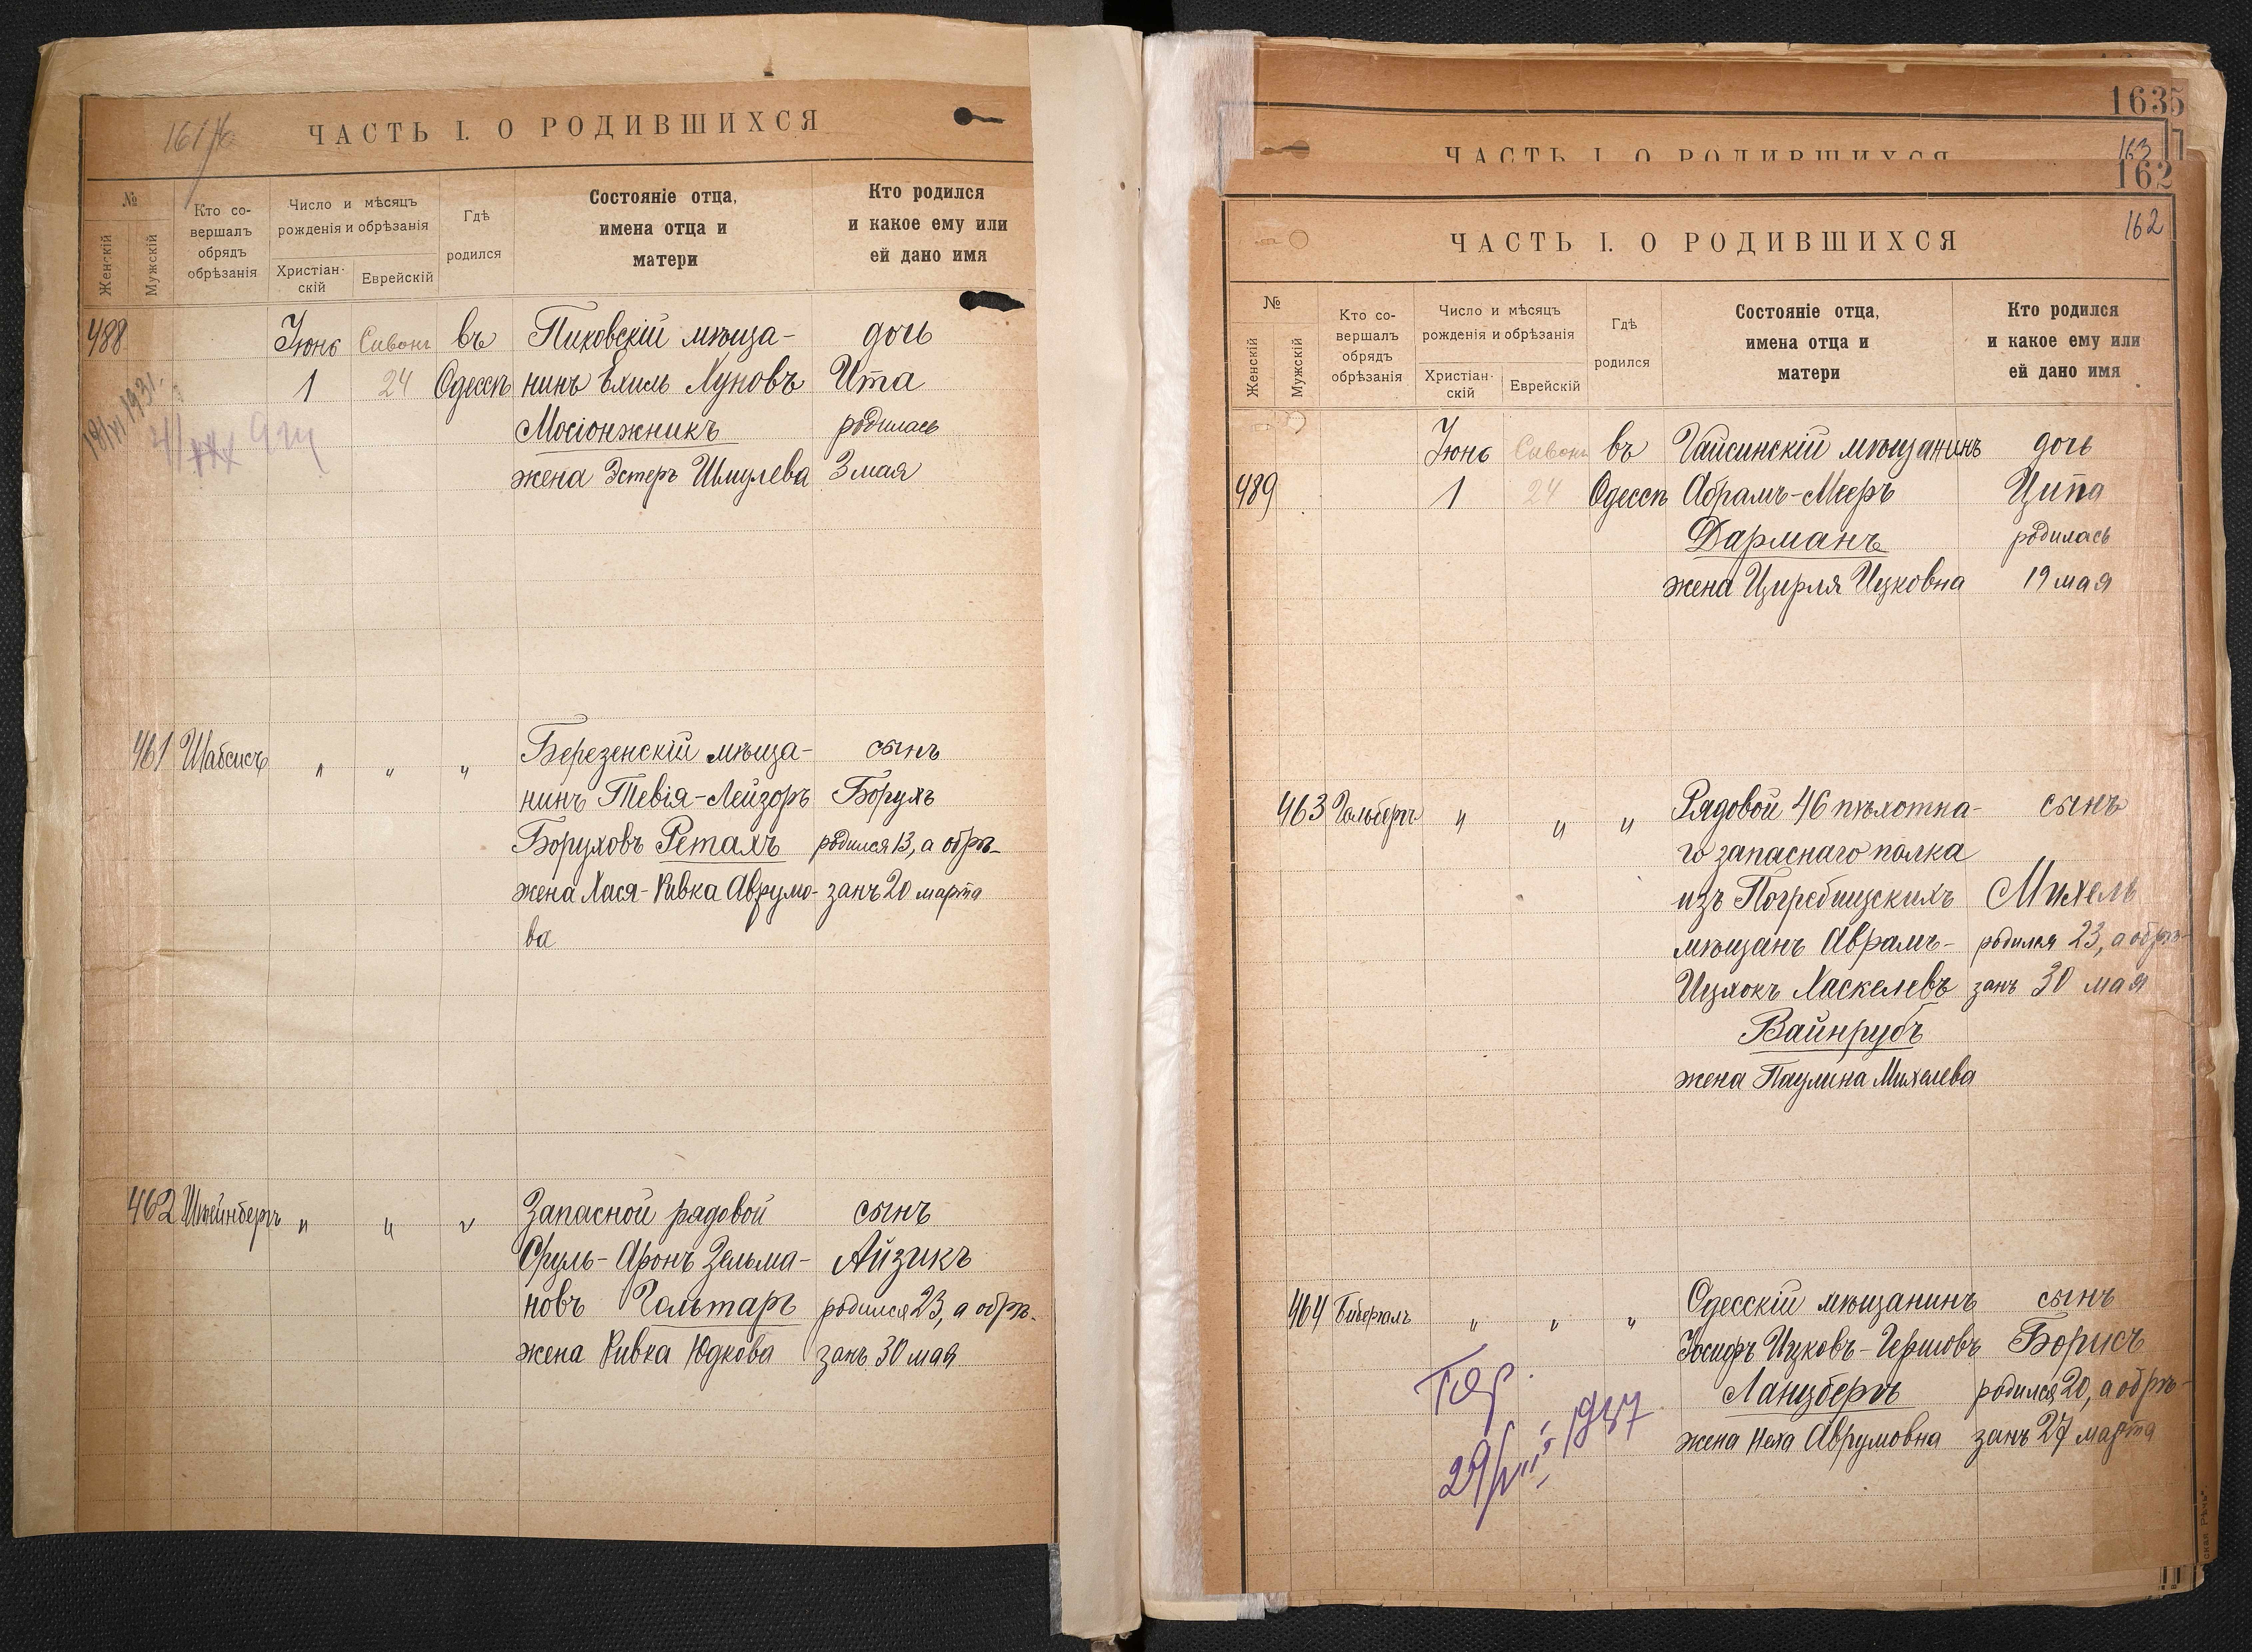 161
ЧАСТЬ I. О РОДИВШИХСЯ
№
Женскій
Мужскій
Кто со-
вершалъ
обрядъ
обрѣзанія
Число и мѣсяцъ
рожденія и обрѣзанія
Христіан-
скій
Еврейскій
Гдѣ
родился
Состояніе отца,
имена отца и
матери
Кто родился
и какое ему или
ей дано имя
488 Іюнь Сивонъ въ Пиковскій мѣща- дочь
1 24 Одессѣ нинъ Ехиль Луновъ Ита
Мосіонжникъ родилась
жена Эстеръ Шмулева 3 мая
461 Шабсисъ " " " Березенскій мѣща- сынъ
нинъ Тевія-Лейзоръ Борухъ
Боруховъ Ретахъ родился 13, а обрѣ-
жена Хася-Ривка Аврумо- занъ 20 марта
ва
462 Штейнбергъ " " " Запасной рядовой сынъ
Сруль-Аронъ Зельма- Айзикъ
новъ Гольтаръ родился 23, а обрѣ-
жена Ривка Юдкова занъ 30 мая
1635
163
ЧАСТЬ I. О РОДИВШИХСЯ
162
162
ЧАСТЬ I. О РОДИВШИХСЯ
№
Женскій
Мужскій
Кто со-
вершалъ
обрядъ
обрѣзанія
Число и мѣсяцъ
рожденія и обрѣзанія
Христіан-
скій
Еврейскій
Гдѣ
родился
Состояніе отца,
имена отца и
матери
Кто родился
и какое ему или
ей дано имя
Іюнь Сивонъ въ Гайсинскій мѣщанинъ дочь
489 1 24 Одессѣ Абрамъ-Мееръ Ципа
Дарманъ родилась
жена Цирля Ицковна 19 мая
463 Гольбергъ " " " Рядовой 46 пѣхотна- сынъ
го запаснаго полка
изъ Погребищскихъ Михель
мѣщанъ Аврамъ- родился 23, а обрѣ-
Ицхокъ Хаскелевъ занъ 30 мая
Вайнрубъ
жена Паулина Михелева
464 " " " Одесскій мѣщанинъ сынъ
Іосифъ Ицковъ-Гершовъ Борисъ
Ланцбергъ родился 20, а обрѣ-
жена Неха Аврумовна занъ 27 марта
29/VIII 1937